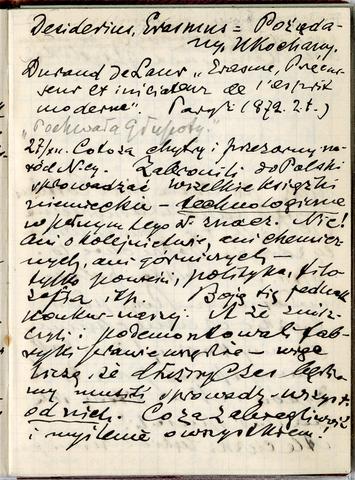 Desiderius, Erasmus = Pożąda-
ny, Ukochany.
Durand de Laur „Erasme, Précur-
seur et initiateur de l'esprit
moderne". Paryż (1872. 2 t.)
„Pochwała Głupoty"
27/XII. Co to za chytry i przezorny na-
ród N-cy. Zabronili do Polski
sprowadzać wszelkie książki
niemieckie – technologiczne
w pełnym tego sł. znacz. Nic!
ani o kolejnictwie, ani chemicz-
nych, ani górniczych –
tylko powieści, polityka, filo-
zofia, itp. Boją się jednak
konkurencji. A że znisz-
czyli i podemontowali fab-
ryki prawie wszędzie – więc
liczą, że dłuższy czas będzie-
my musieli sprowadz. wszystk.
od nich. Co za zabiegliwość
i myślenie o wszystkiem!